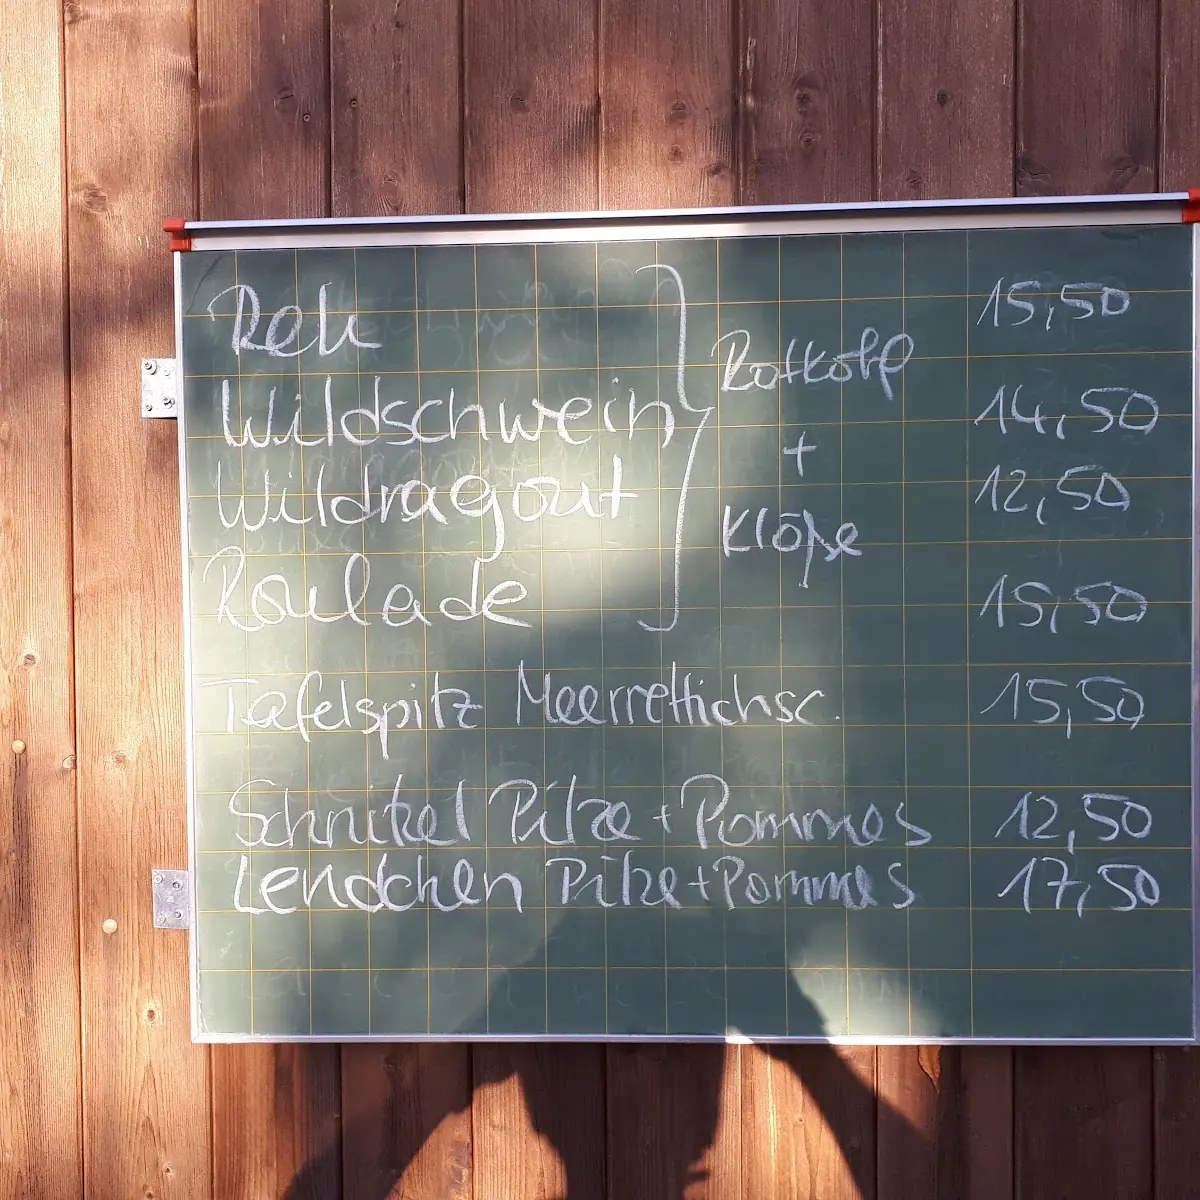 Reh } Rotkohl 15,50
Wildschwein 14,50
+
Wildragout 12,50
Klöße
Roulade 15,50
Tafelspitz Meerrettichsc. 15,50
Schnitzel Pilze + Pommes 12,50
Lendchen Pilze + Pommes 17,50